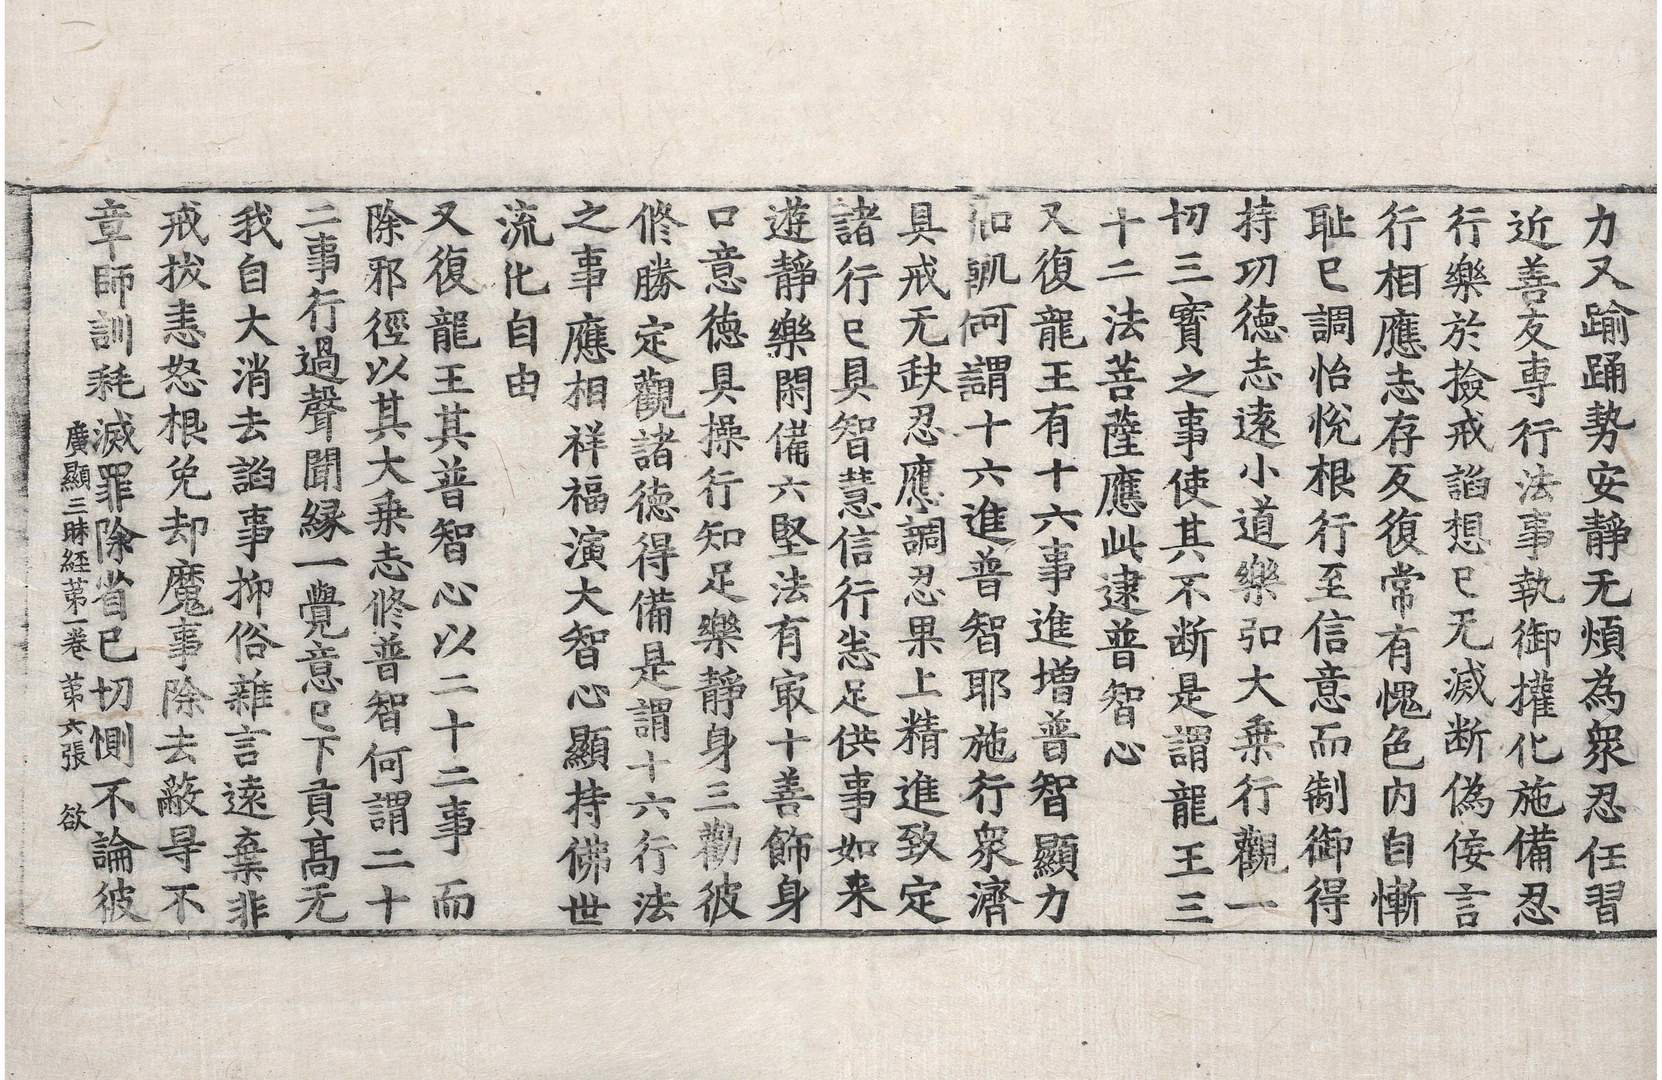 力又踰踊勢安靜无煩為衆忍任習
近善友専行法事執御攉化施備忍
行樂於撿戒諂想已无滅断偽佞言
行相應志存反復常有愧色内自慚
耻已調怡悅根行至信意而制御得
持功徳志遠小道樂弘大乗行觀一
切三寳之事使其不断是謂龍王三
十二法菩薩應此逮普智心
又復龍王有十六事進增普智顯力
如軌何謂十六進普智耶施行衆濟
具戒无缺忍應調忍果上精進致定
諸行已具智慧信行恚足供事如来
遊靜樂閑備六堅法有㝡十善飾身
口意徳具操行知足樂靜身三勸彼
修勝定觀諸徳得備是謂十六行法
之事應相祥福演大智心顯持佛世
流化自由
又復龍王其普智心以二十二事而
除邪徑以其大乗志修普智何謂二十
二事行過聲聞縁一覺意已下貢高无
我自大消去諂事抑俗雜言遠棄非
戒拔恚怒根免却魔事除去蔽㝵不
章師訓耗滅罪除省已切惻不論彼
廣顯三昧經苐一卷 苐六張 欲